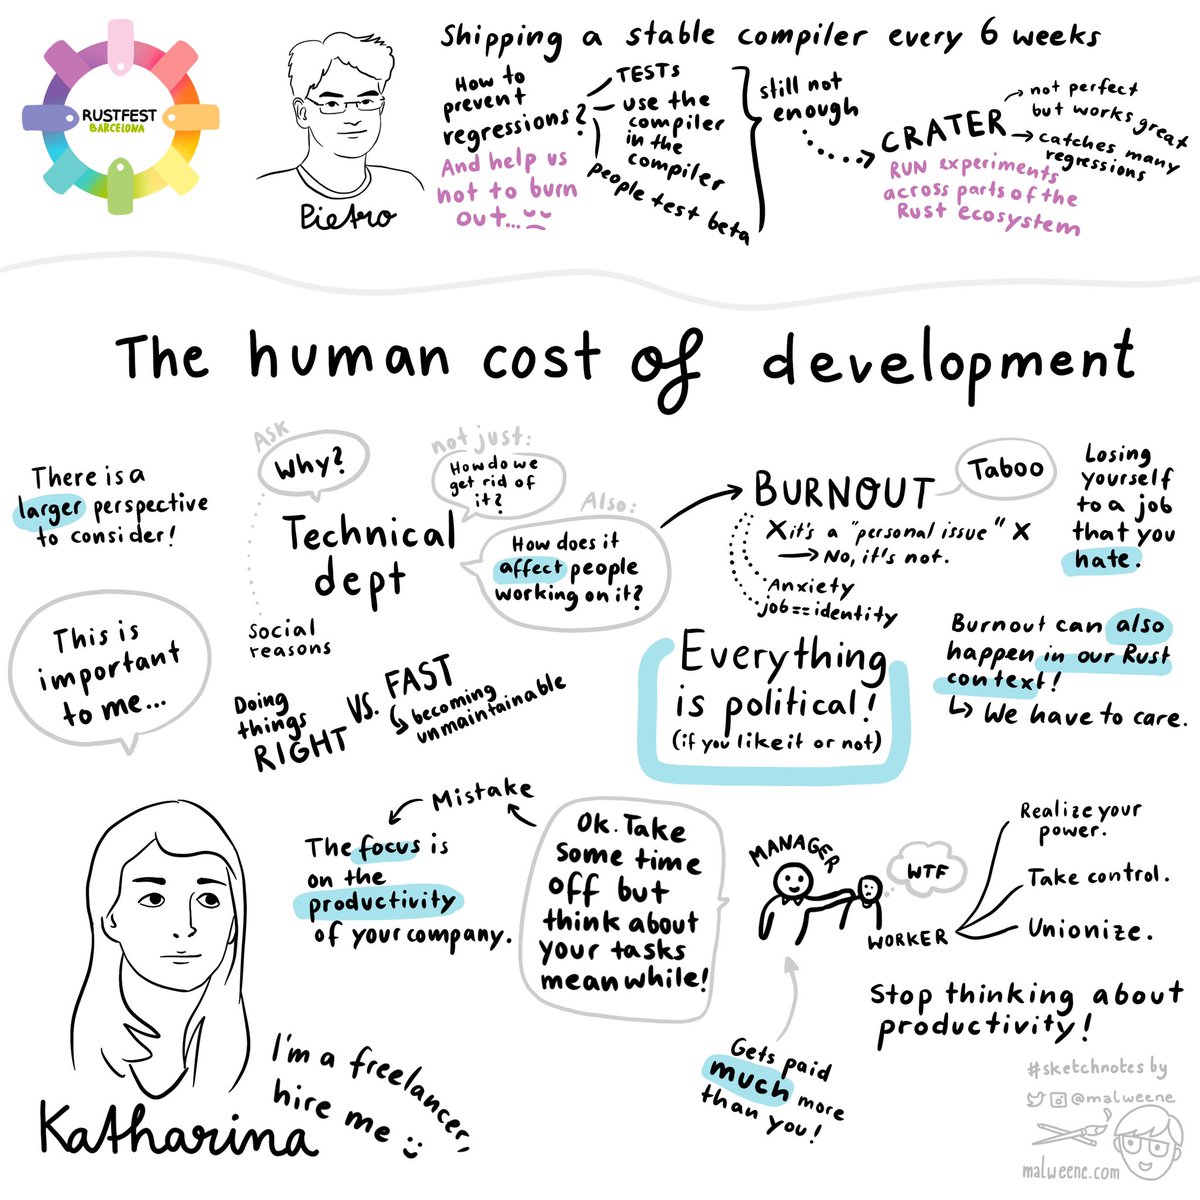 RUSTFEST
BARCELONA
Pietro
Shipping a stable compiler every 6 weeks
How to
prevent
regressions?
And help us
not to burn
out...
TESTS
use the
compiler
in the
compiler
people test beta
still not
enough
CRATER
not perfect
but works great
catches many
regressions
RUN experiments
across parts of the
Rust ecosystem
The human cost of development
There is a
larger perspective
to consider!
This is
important
to me...
ASK
Why?
not just:
How do we
get rid of
it?
Technical
dept
Also:
How does it
affect people
working on it?
Social
reasons
Doing
things
RIGHT
VS.
FAST
becoming
unmaintainable
BURNOUT
Taboo
X it's a "personal issue" X
No, it's not.
Anxiety
job==identity
Losing
yourself
to a job
that you
hate.
Everything
is political!
(if you like it or not)
Burnout can also
happen in our Rust
context!
We have to care.
Mistake
The focus is
on the
productivity
of your company.
Ok. Take
some time
off but
think about
your tasks
meanwhile!
MANAGER
WTF
WORKER
Realize your
power.
Take control.
Unionize.
Stop thinking about
productivity!
Gets paid
much more
than you!
Katharina
I'm a freelancer,
hire me :)
#sketchnotes by
@malweene
malweene.com